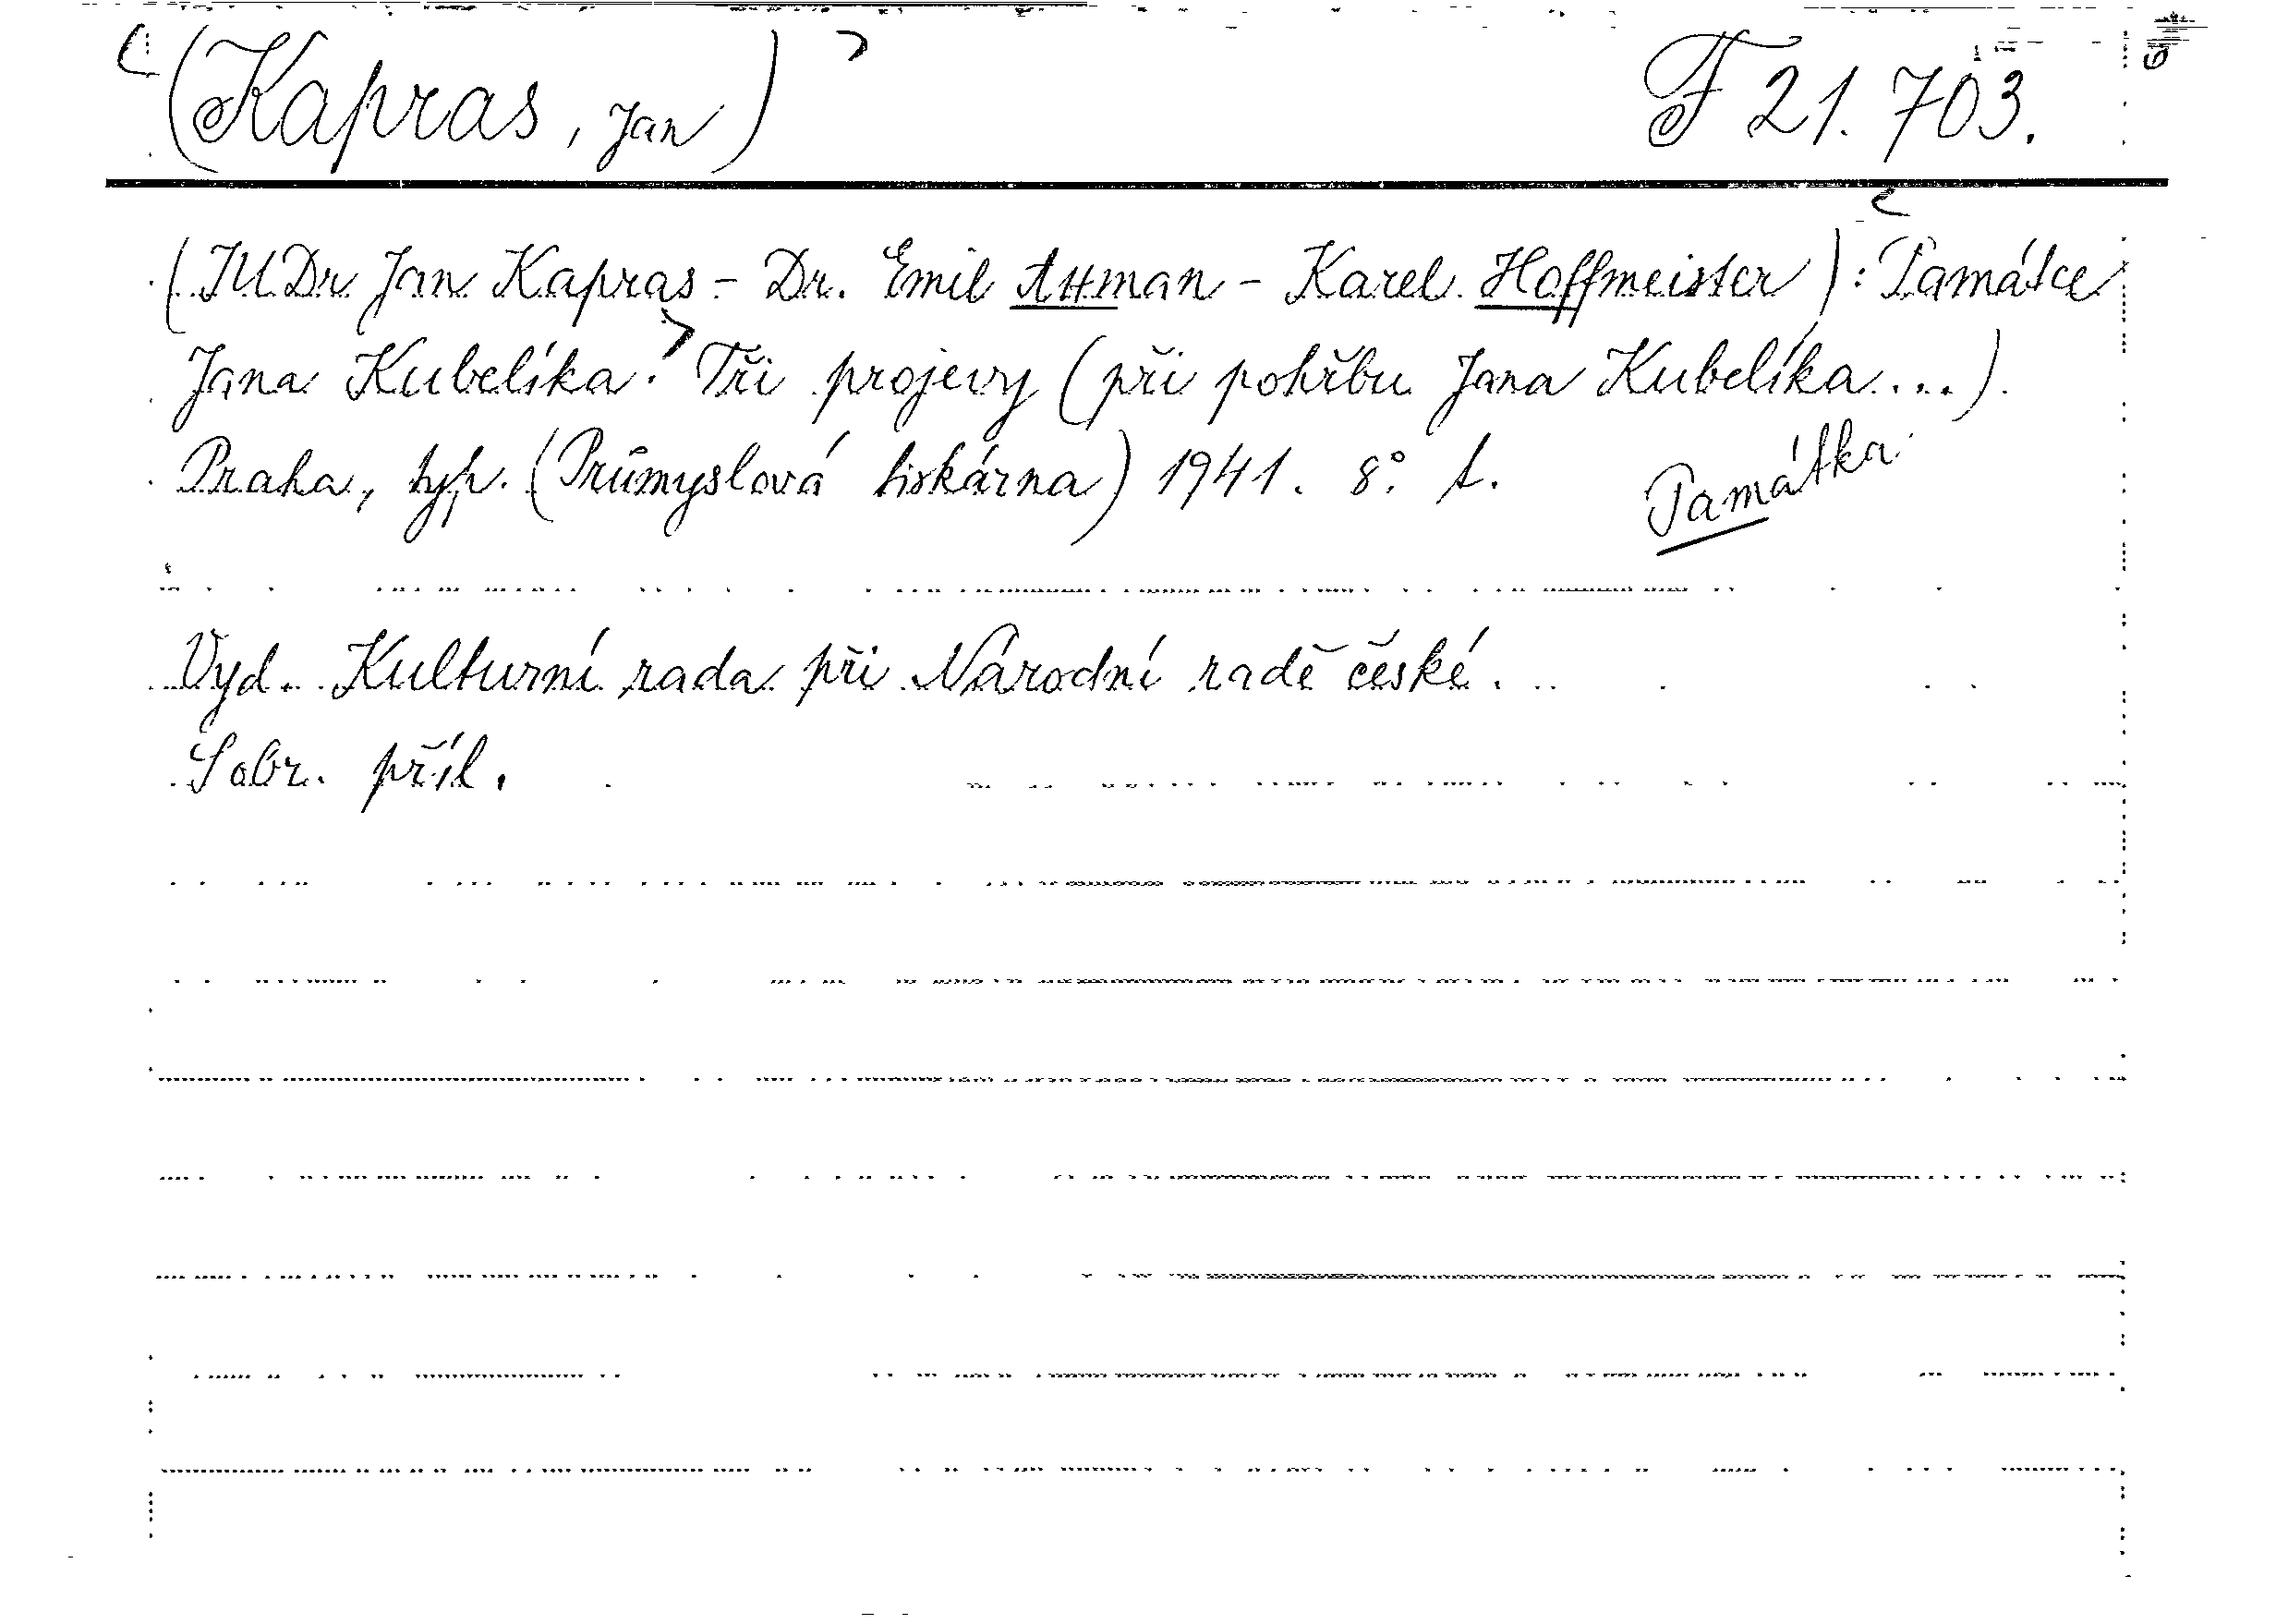 (Kapras, Jan) F 21.703.
(JUDr Jan Kapras - Dr. Emil Attman - Karel Hoffmeister): Památce
Jana Kubelíka. Tři projevy (při pohřbu Jana Kubelíka...).
Praha, typ. (Průmyslová tiskárna) 1941. 8° t.
Památka
Vyd. Kulturní rada při Národní radě české.
S obr. příl.